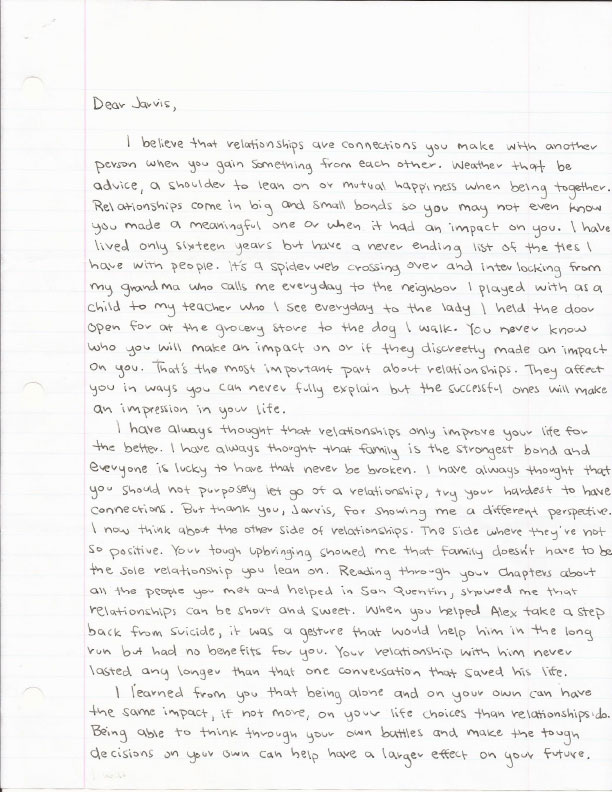 Dear Jarvis,
I believe that relationships are connections you make with another
person when you gain something from each other. Weather that be
advice, a shoulder to lean on or mutual happiness when being together.
Relationships come in big and small bonds so you may not even know
you made a meaningful one or when it had an impact on you. I have
lived only sixteen years but have a never ending list of the ties I
have with people. It's a spiderweb crossing over and interlocking from
my grandma who calls me everyday to the neighbor I played with as a
child to my teacher who I see everyday to the lady I held the door
open for at the grocery store to the dog I walk. You never know
who you will make an impact on or if they discreetly made an impact
on you. That's the most important part about relationships. They affect
you in ways you can never fully explain but the successful ones will make
an impression in your life.
I have always thought that relationships only improve your life for
the better. I have always thought that family is the strongest bond and
everyone is lucky to have that never be broken. I have always thought that
you should not purposely let go of a relationship, try your hardest to have
connections. But thank you, Jarvis, for showing me a different perspective.
I now think about the other side of relationships. The side where they're not
so positive. Your tough upbringing showed me that family doesn't have to be
the sole relationship you lean on. Reading through your chapters about
all the people you met and helped in San Quentin, showed me that
relationships can be short and sweet. When you helped Alex take a step
back from suicide, it was a gesture that would help him in the long
run but had no benefits for you. Your relationship with him never
lasted any longer than that one conversation that saved his life.
I learned from you that being alone and on your own can have
the same impact, if not more, on your life choices than relationships do.
Being able to think through your own battles and make the tough
decisions on your own can help have a larger effect on your future.